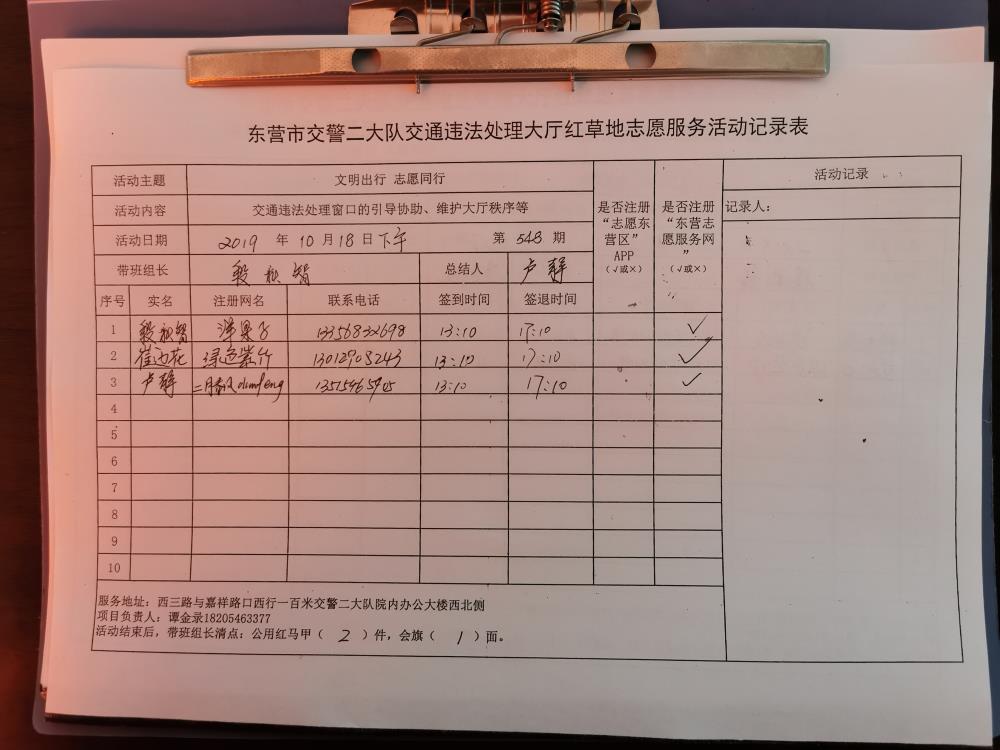 东营市交警二大队交通违法处理大厅红草地志愿服务活动记录表
活动主题 文明出行 志愿同行
活动内容 交通违法处理窗口的引导协助、维护大厅秩序等
活动日期 2019 年 10 月 18 日下午 第 548 期
带班组长 总结人 卢静
序号 实名 注册网名 联系电话 签到时间 签退时间
是否注册“志愿东营区”APP（√或×）
是否注册“东营志愿服务网”（√或×）
活动记录
记录人：
1 洋果子 13356832698 13:10 17:10 ✓
2 绿色紫竹 13012908243 13:10 17:10 ✓
3 卢静 13:10 17:10 ✓
4
5
6
7
8
9
10
服务地址：西三路与嘉祥路口西行一百米交警二大队院内办公大楼西北侧
项目负责人：谭金录18205463377
活动结束后，带班组长清点：公用红马甲（ 2 ）件，会旗（ 1 ）面。